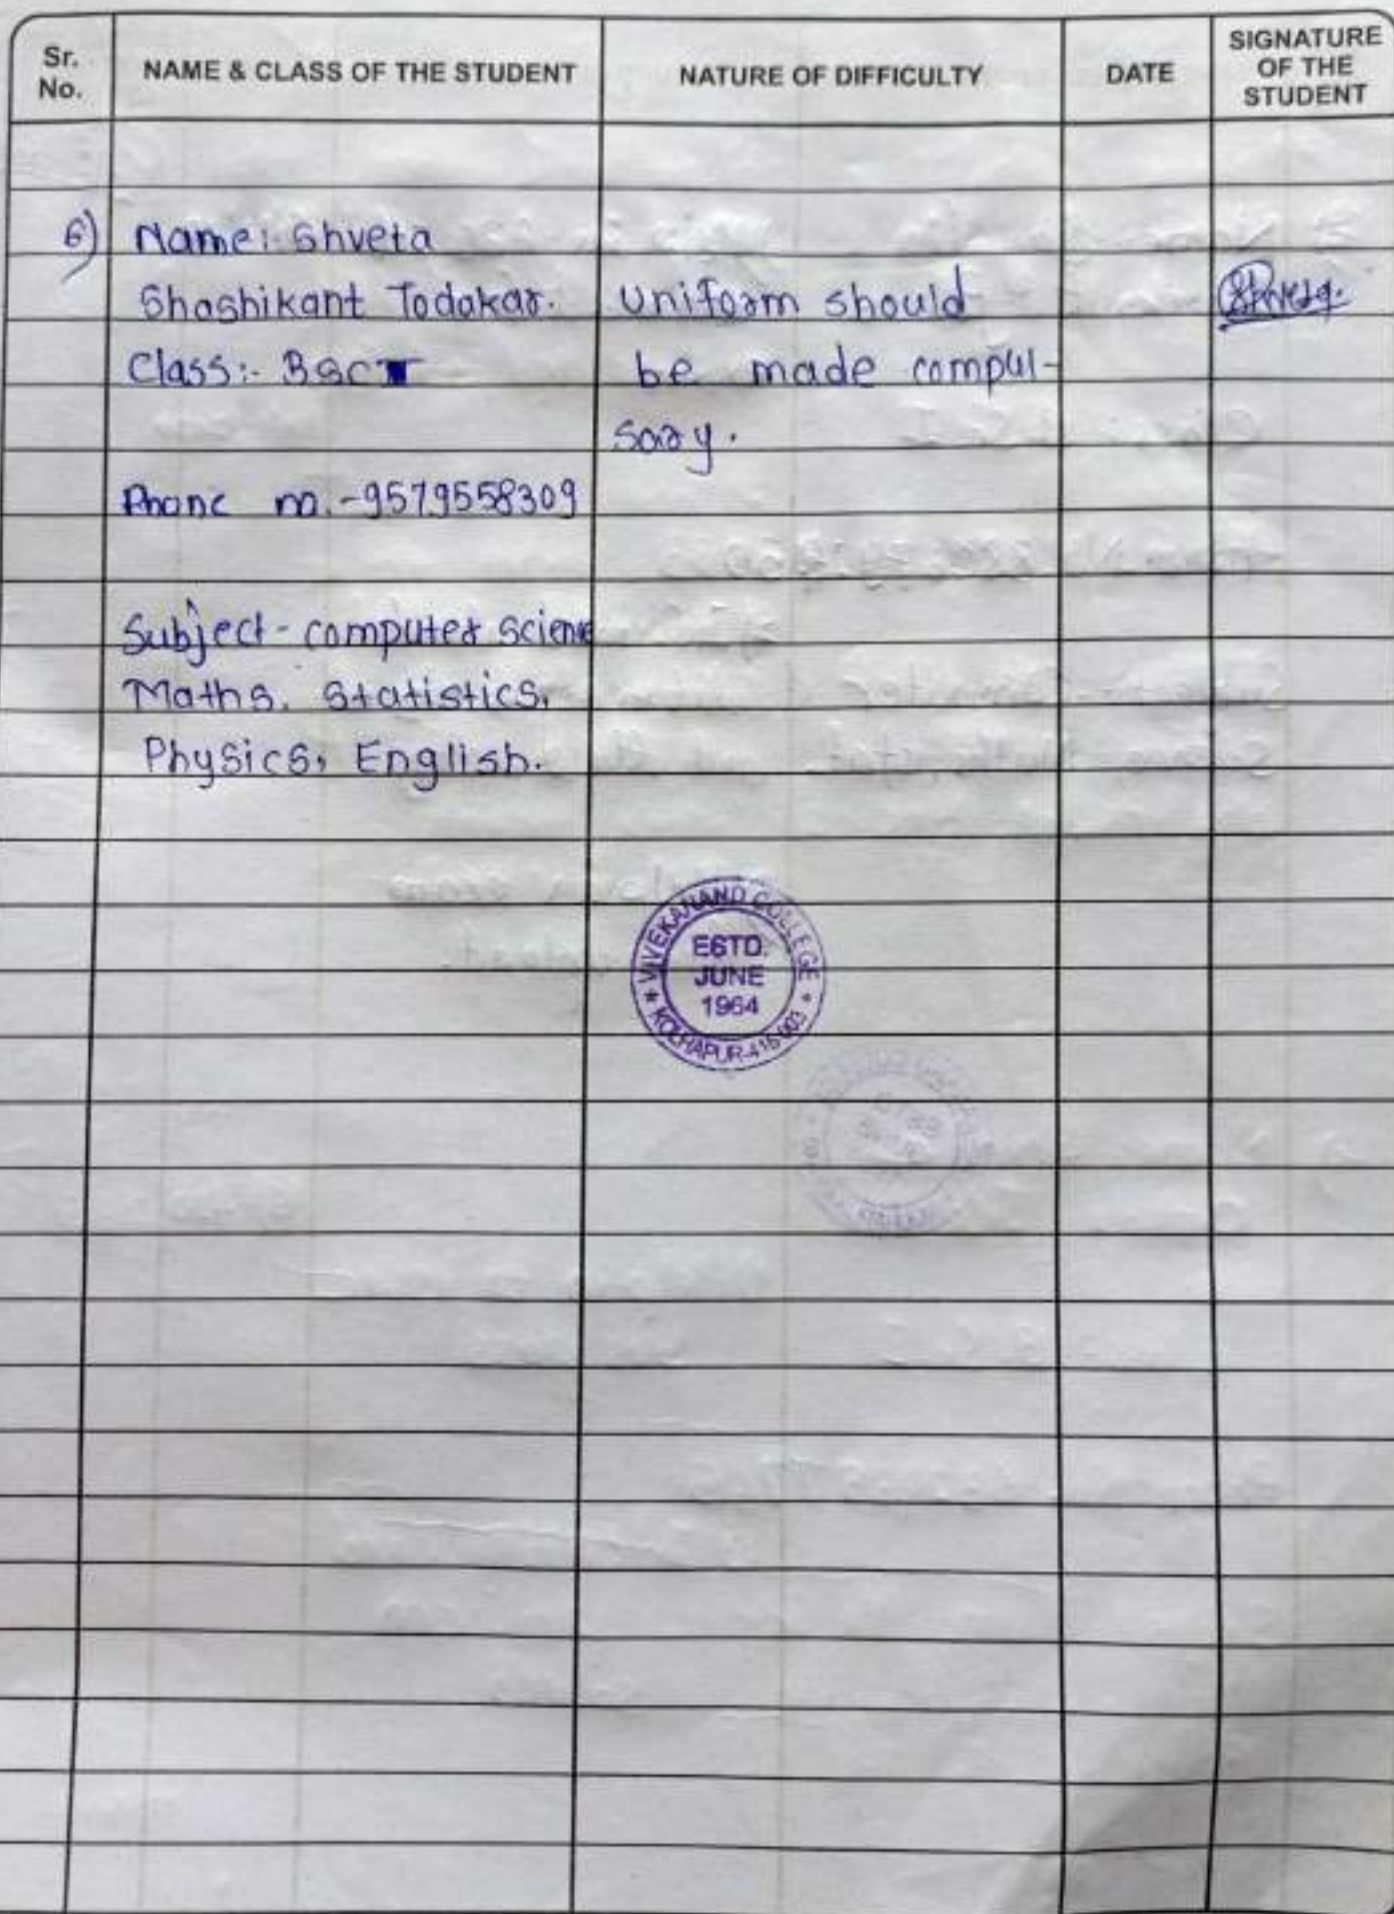 Sr. No.
NAME & CLASS OF THE STUDENT
NATURE OF DIFFICULTY
DATE
SIGNATURE OF THE STUDENT
6) Name:- Shveta
Shashikant Todakar.
Class:- BSC
Phone no.-9579558309
Subject - computer science
Maths, Statistics,
Physics, English.
Uniform should
be made compul-
sory.
Shveta.
VIVEKANAND COLLEGE
ESTD.
JUNE
1964
KOLHAPUR-416 003